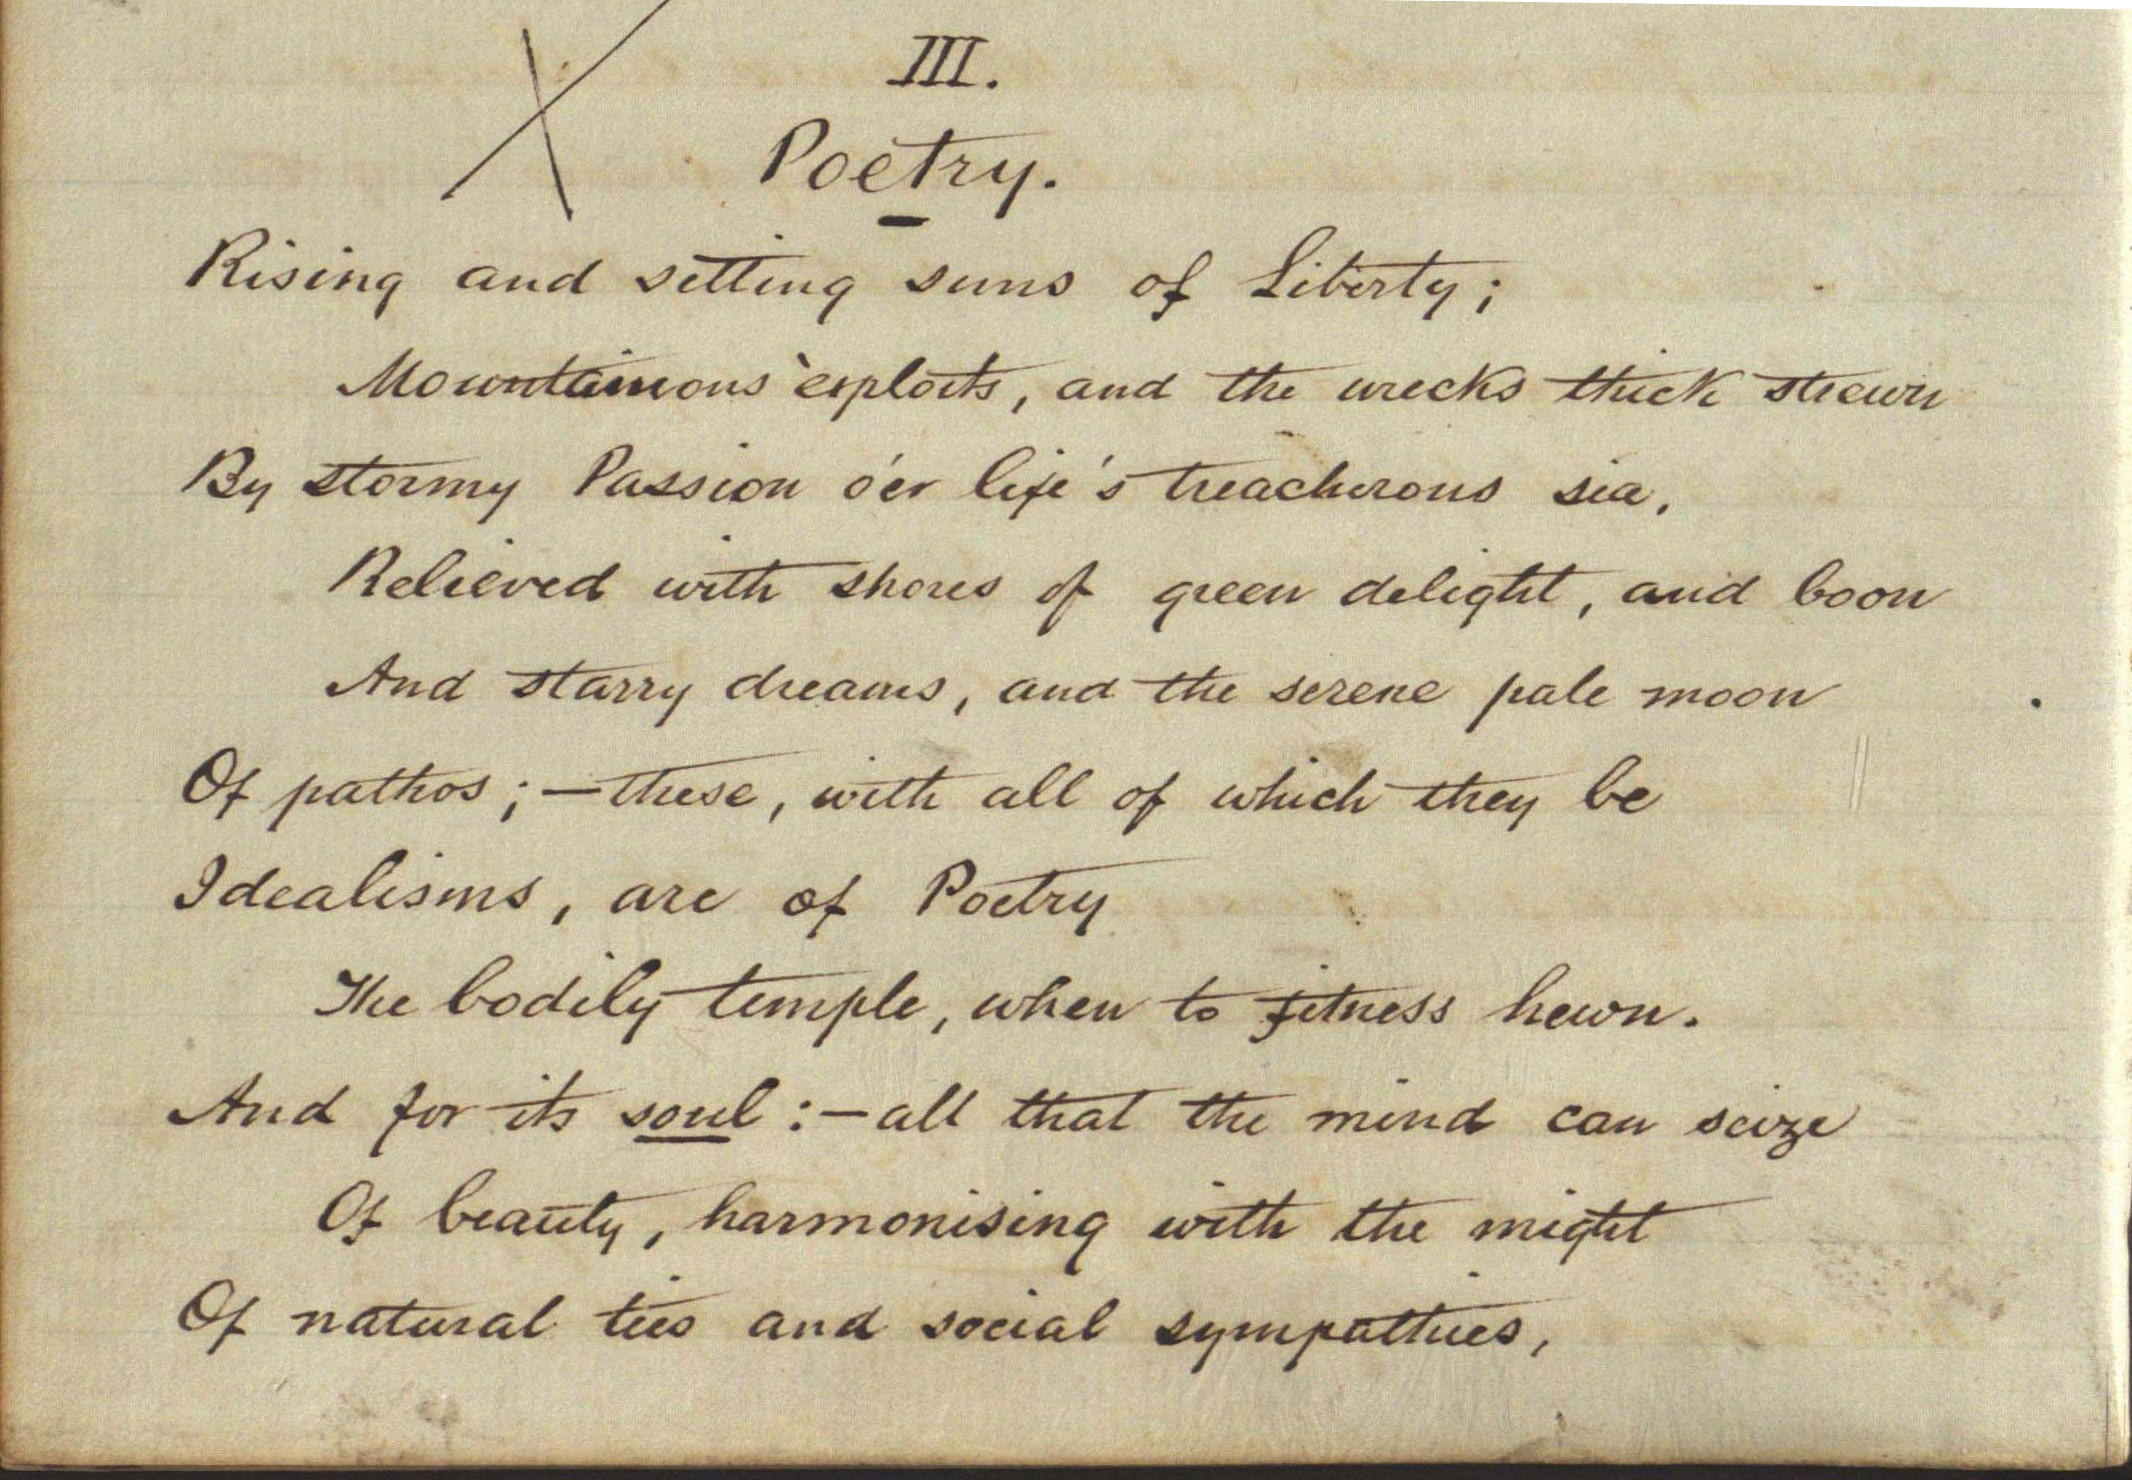 III.
Poetry.
Rising and setting suns of Liberty;
Mountainous exploits, and the wrecks thick strewn
By stormy Passion o'er life's treacherous sea,
Relieved with shores of green delight, and boon
And starry dreams, and the serene pale moon
Of pathos;—these, with all of which they be
Idealisms, are of Poetry
The bodily temple, when to fitness hewn.
And for its soul:—all that the mind can seize
Of beauty, harmonising with the might
Of natural ties and social sympathies,